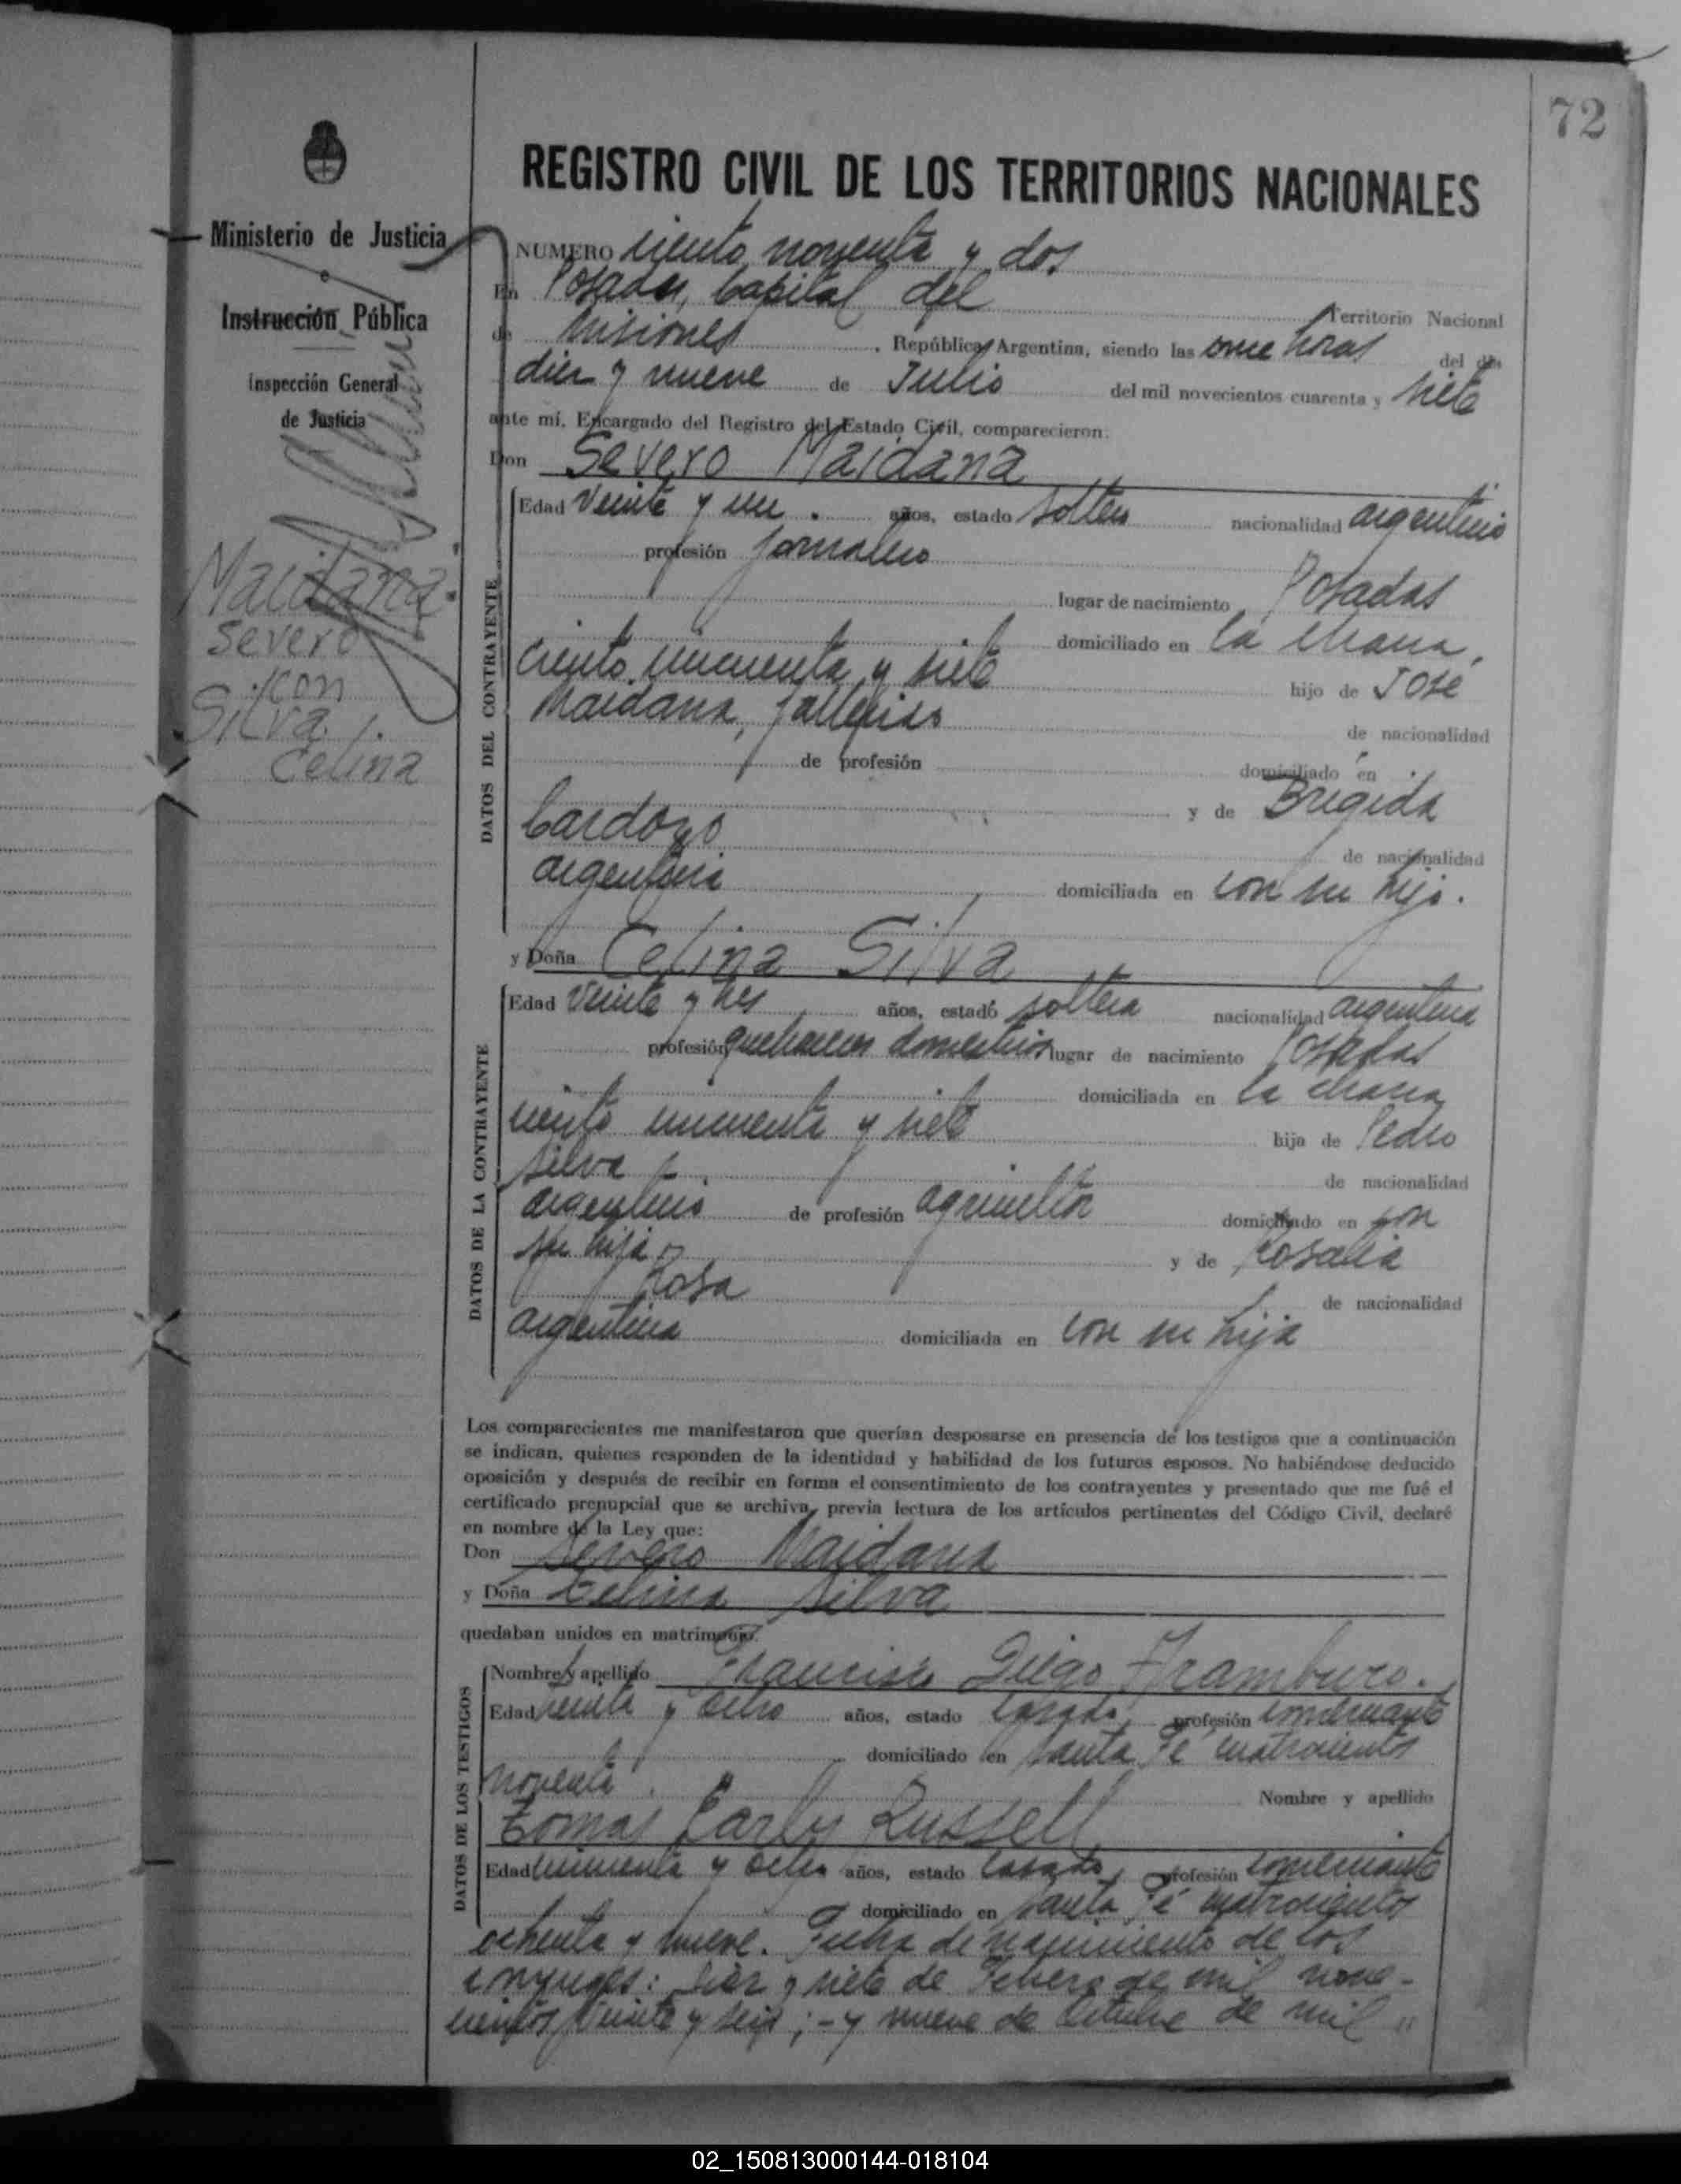 72
Ministerio de Justicia
e
Instrucción Pública
Inspección General
de Justicia
Maidana
Severo
con
Silva
Celina
REGISTRO CIVIL DE LOS TERRITORIOS NACIONALES
NUMERO ciento noventa y dos
En Posadas, Capital del Territorio Nacional
de Misiones, República Argentina, siendo las once horas del día
diez y nueve de Julio del mil novecientos cuarenta y siete
ante mí, Encargado del Registro del Estado Civil, comparecieron:
Don Severo Maidana
DATOS DEL CONTRAYENTE
Edad veinte y un años, estado soltero nacionalidad argentino
profesión jornalero
lugar de nacimiento Posadas
domiciliado en la chacra,
ciento cincuenta y siete hijo de José
Maidana, fallecido de nacionalidad
de profesión domiciliado en
y de Brígida
Cardozo de nacionalidad
argentina domiciliada en con su hijo.
y Doña Celina Silva
DATOS DE LA CONTRAYENTE
Edad veinte y tres años, estado soltera nacionalidad argentina
profesión quehaceres domésticos lugar de nacimiento Posadas
domiciliada en la chacra
ciento cincuenta y siete hija de Pedro
Silva de nacionalidad
argentino de profesión agricultor domiciliado en con
su hija y de Rosalia
Rosa de nacionalidad
argentina domiciliada en con su hija
Los comparecientes me manifestaron que querían desposarse en presencia de los testigos que a continuación
se indican, quienes responden de la identidad y habilidad de los futuros esposos. No habiéndose deducido
oposición y después de recibir en forma el consentimiento de los contrayentes y presentado que me fué el
certificado prenupcial que se archiva, previa lectura de los artículos pertinentes del Código Civil, declaré
en nombre de la Ley que:
Don Severo Maidana
y Doña Celina Silva
quedaban unidos en matrimonio.
DATOS DE LOS TESTIGOS
Nombre y apellido Francisco Diego Aramburo.
Edad y ocho años, estado casado, profesión comerciante
domiciliado en Santa Fé cuatrocientos
noventa. Nombre y apellido
Tomas Carlos Russell
Edad cincuenta y ocho años, estado casado, profesión comerciante
domiciliado en Santa Fé cuatrocientos
ochenta y nueve. Fecha de nacimiento de los
conyuges: Diez y siete de Febrero de mil nove-
cientos veinte y seis; - y nueve de Octubre de mil "
02_150813000144-018104